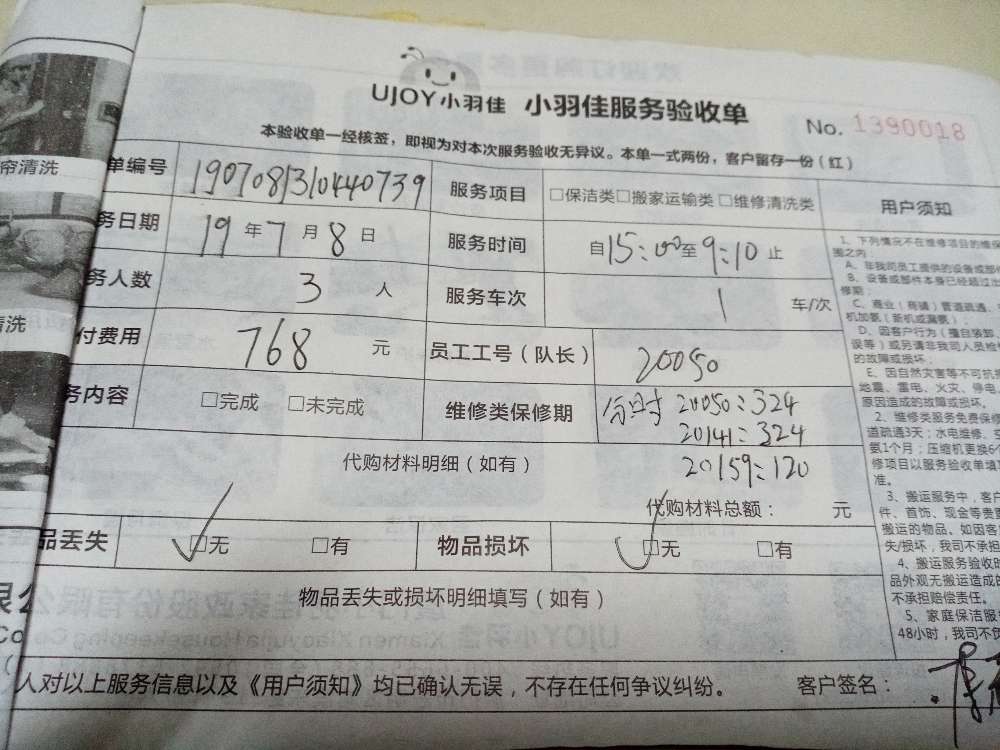 UJOY小羽佳 小羽佳服务验收单
No. 1390018
本验收单一经核签，即视为对本次服务验收无异议。本单一式两份，客户留存一份（红）
帘清洗
单编号 190708131044073​9 服务项目 □保洁类□搬家运输类 □维修清洗类 用户须知
务日期 19 年 7 月 8 日 服务时间 自15:00至9:10止
务人数 3 人 服务车次 1 车/次
清洗
付费用 768 元 员工工号（队长） 20050
务内容 □完成 □未完成 维修类保修期 20050:324
20141:324
代购材料明细（如有） 20159:120
代购材料总额： 元
品丢失 ☑无 □有 物品损坏 ☑无 □有
物品丢失或损坏明细填写（如有）
人对以上服务信息以及《用户须知》均已确认无误，不存在任何争议纠纷。 客户签名：
1、下列情况不在维修项目的维保
围之内：
A、非我司员工提供的设备或部件
B、设备或部件本身已经超过
修期；
C、商业（商铺）管道疏通、
机加氨（新机或漏氨）
D、因客户行为（擅自装卸
误等）或另请非我司人员检修
的故障或损坏；
E、因自然灾害等不可抗
地震、雷电、火灾、停电
原因造成的故障或损坏。
2、维修类服务免费保修
道疏通3天；水电维修、
氨1个月；压缩机更换6个
修项目以服务验收单填写
准。
3、搬运服务中，客户
件、首饰、现金等贵重
搬运的物品。如因客
失/损坏，我司不承担
4、搬运服务验收时
品外观无搬运造成
不承担赔偿责任。
5、家庭保洁服务
48小时，我司不负